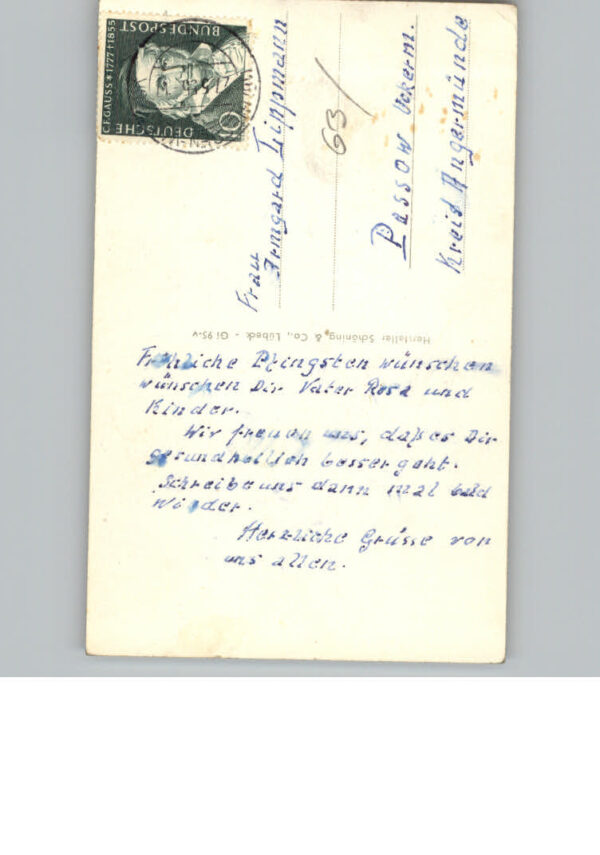 C.F. GAUSS * 1777 † 1855
DEUTSCHE
BUNDESPOST
10
Frau
Irmgard Lippmann
63/
Passow Uckerm.
Kreis Angermünde
Hersteller Schöning & Co., Lübeck - Gi 95-v
Fröhliche Pfingsten wünschen
wünschen Dir Vater Rosa und
Kinder.
Wir freuen uns, daß es Dir
gesundheitlich besser geht.
Schreibe uns dann mal bald
wieder.
Herzliche Grüsse von
uns allen.